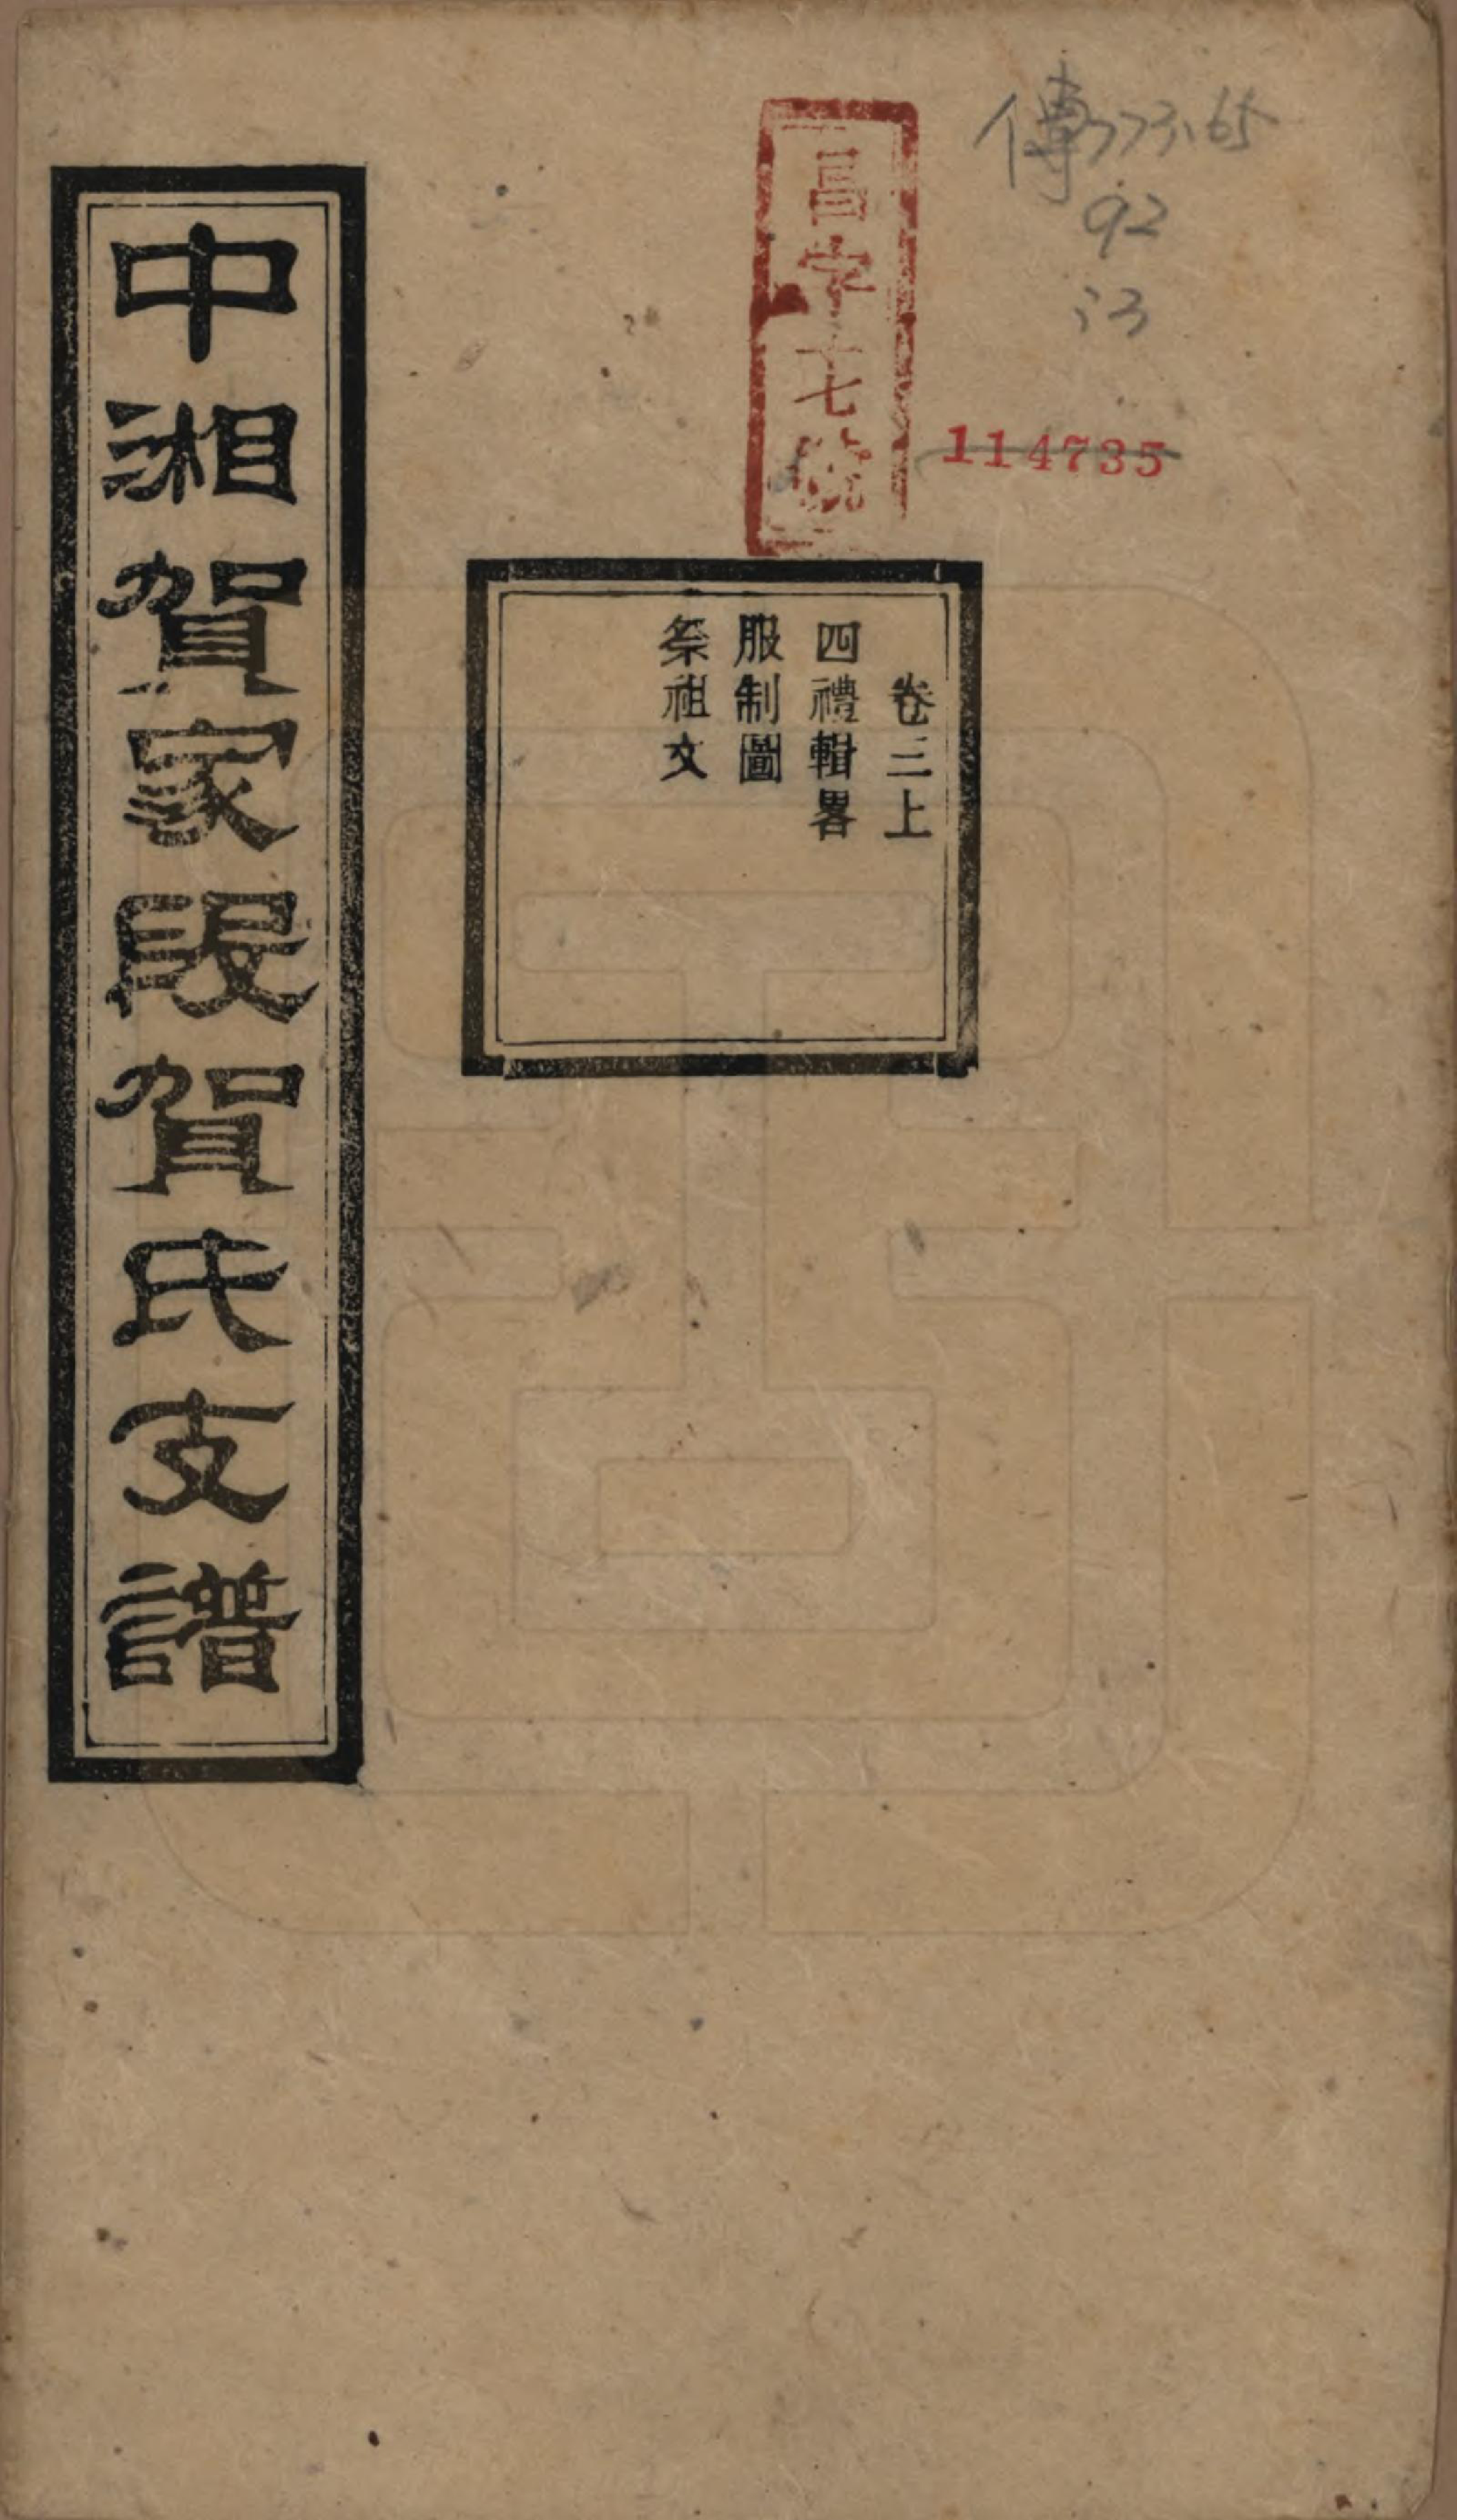 傳773.65
92
:3
114735
昌字十七號
卷三上
四禮輯畧
服制圖
祭祖文
中湘賀家段賀氏支譜